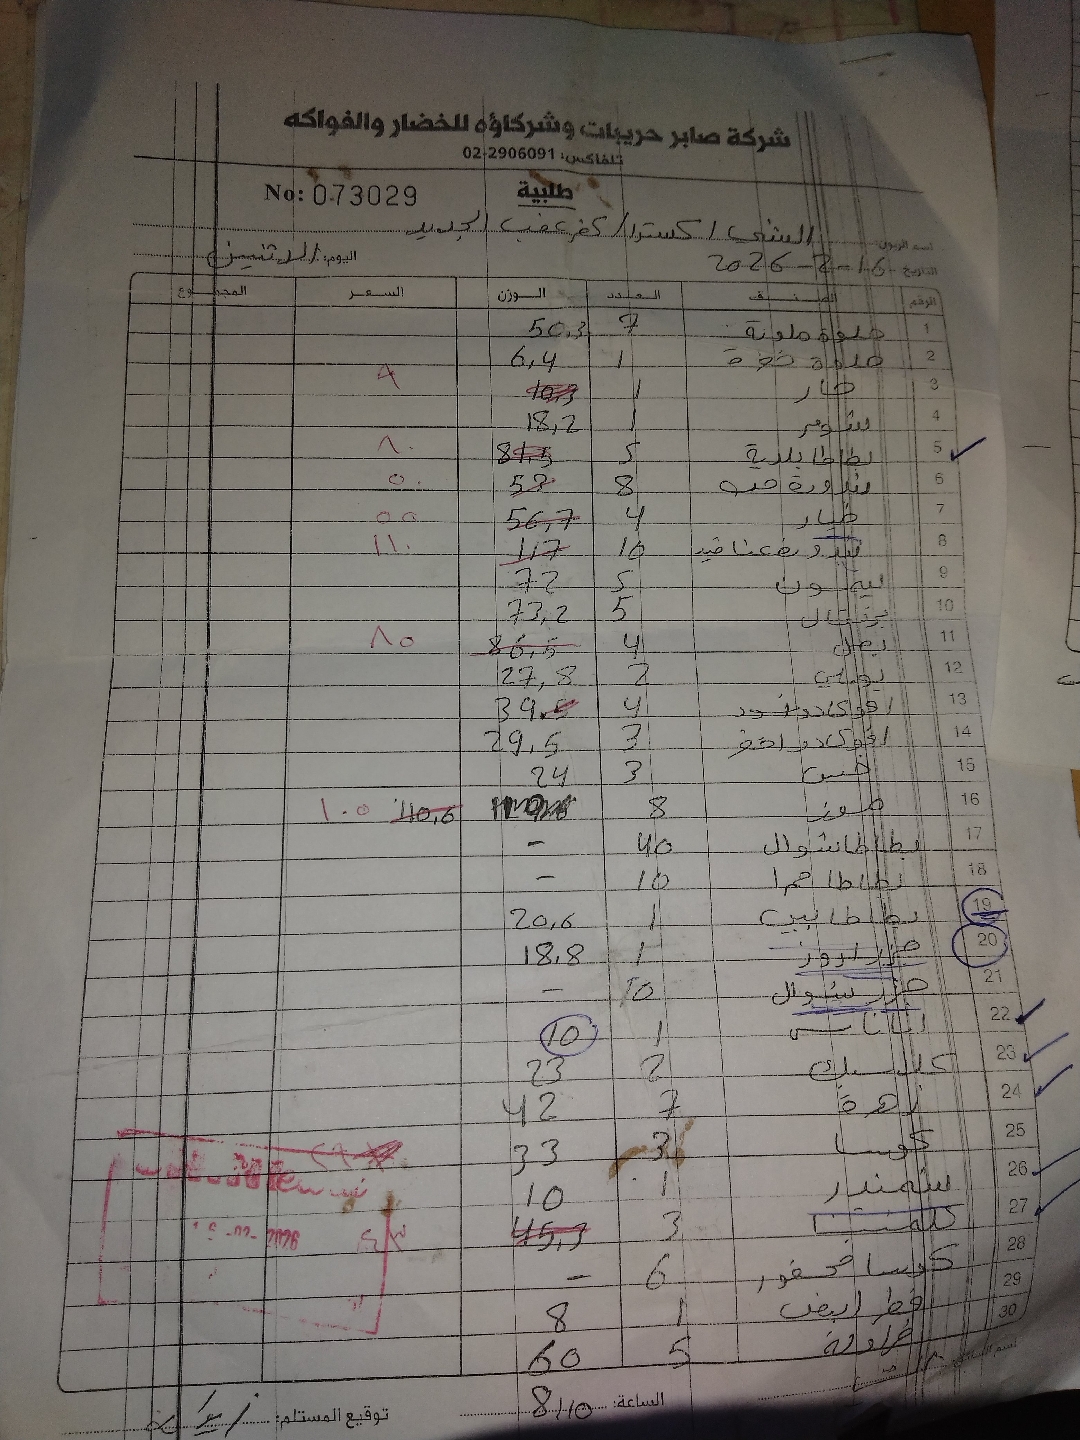 شركة صابر حريبات وشركاؤه للخضار والفواكه
تلفاكس: 02-2906091
طلبية
No: 073029
اسم الزبون: الشني اكسترا / كفر عقب الجديد
التاريخ 2026-2-16 اليوم: الاثنين
الرقم الصنف العدد الوزن السعر المجموع
1 حلوة ملونة 7 50,3
2 حلوة خضرة 1 6,4
3 حار 1 10,3 ٩
4 شومر 1 18,2
5 بطاطا بلدية 5 81,5 ٨٠
6 بندورة حب 8 52 ٥٠
7 خيار 4 56,7 ٥٥
8 بندورة عناقيد 10 117 ١١٠
9 ليمون 5 72
10 برتقال 5 73,2
11 بصل 4 86,5 ٨٥
12 بوملي 2 27,8
13 افوكادو اسود 4 39,5
14 افوكادو اخضر 3 29,5
15 خس 3 24
16 موز 8 110,6 ١٠٥
17 بطاطا شوال 40 -
18 بطاطا حمرا 10 -
19 بطاطا بيبي 1 20,6
20 جزر اروز 1 18,8
21 جزر شوال 10 -
22 اناناس 1 10
23 كلاسيك 2 23
24 زهرة 7 42
25 كوسا 3 33
26 شمندر 1 10
27 كلمنتينا 3 45,3
28 كوسا محفور 6 -
29 فطر ابيض 1 8
30 فراولة 5 60
الساعة: 8/10
توقيع المستلم: